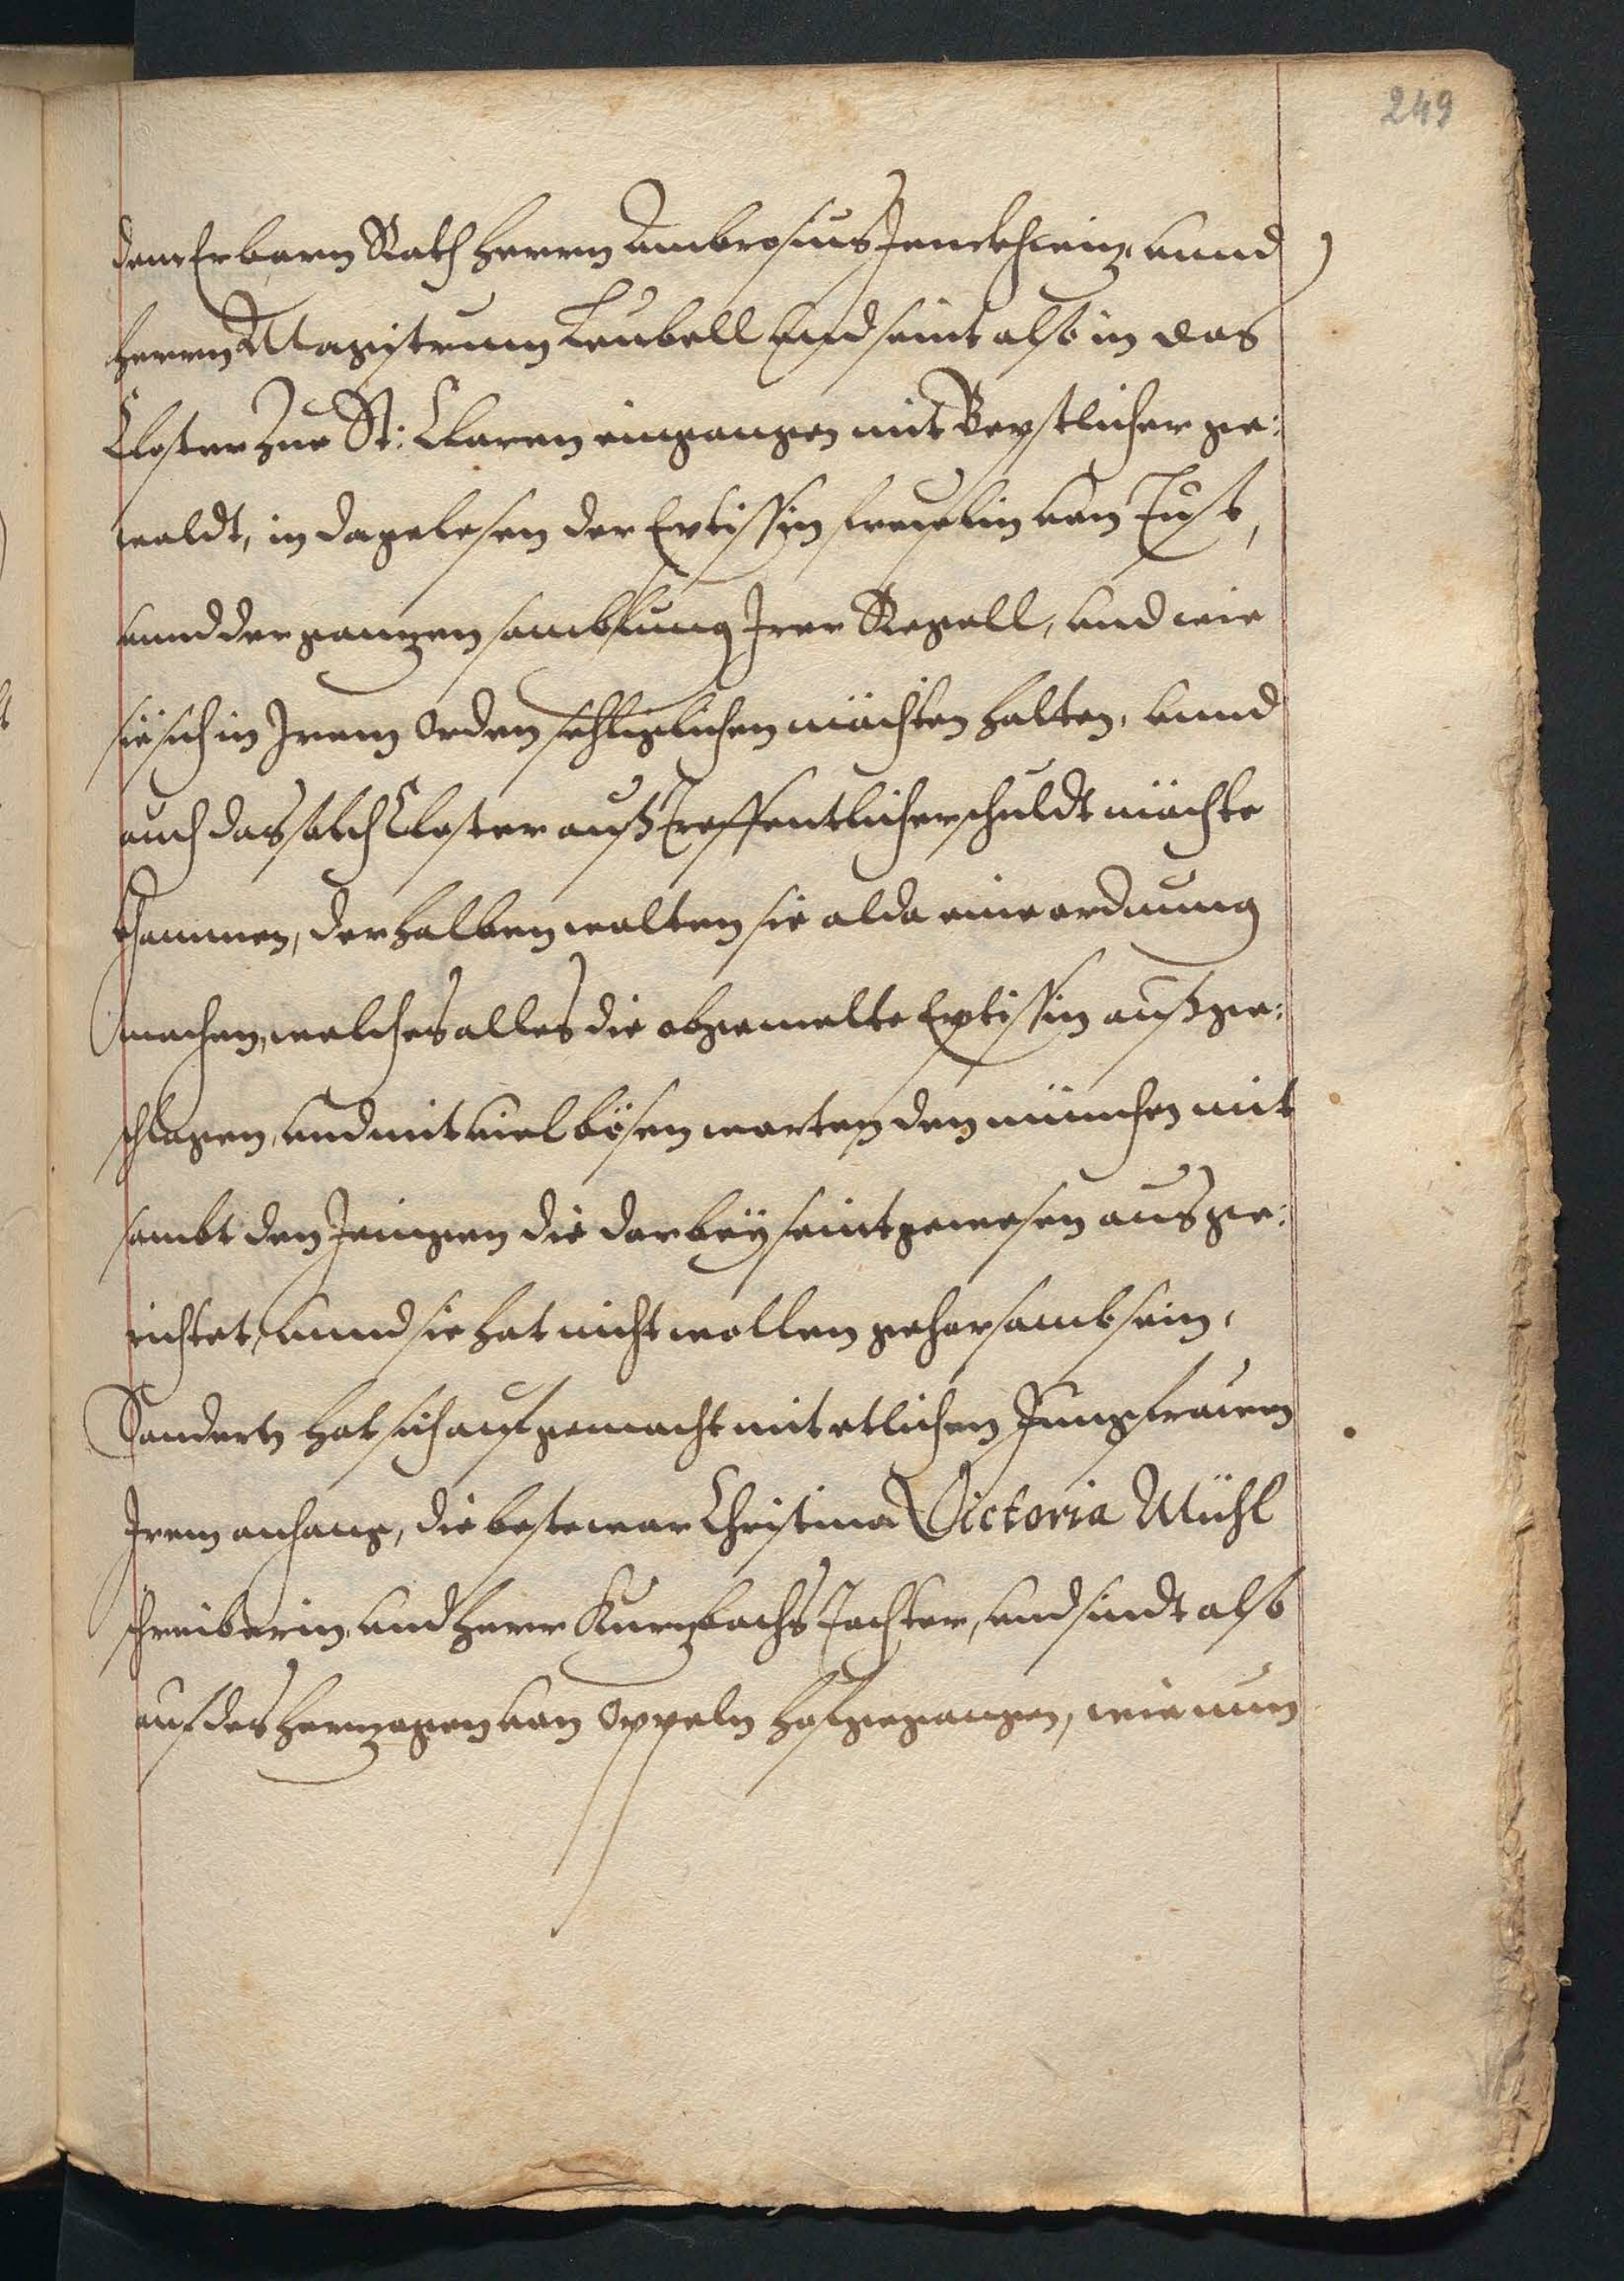 249
dem Erbarn Rath Herrn Ambrosius Jenckhwiz, unnd
Herrn Magistrum Leubell Und seint also in das
Closter Zue St: Claren eingangen mit Beystlicher ge:
waldt, in da gelesen der Eptissin freulin von Tust,
unnd der ganzen samblung Irer Regell, und wie
sie sich in Irem Orden schliglichen möchten halten, unnd
auch das solch Closter auß Treffentlicher schuldt möchte
khommen, derhalben wolten sie alda eine ordnung
machen, welches alles die obgemelte Eptissin außge:
schlagen, und mit viel bösen worten den münchen mit
sambt den Jenigen die darbey seint gewesen ausge:
richtet, unnd sie hat nicht wollen gehorsamb sein,
Sondern hat sich auf gemacht mit etlichen Jungfrauen
Irem anhang, die beste war Christina Victoria Mühl
schreiberin, und Herr Kurzbachs Tochter, und sindt also
auf des Herzogen von Oppeln hof gegangen, wie nun